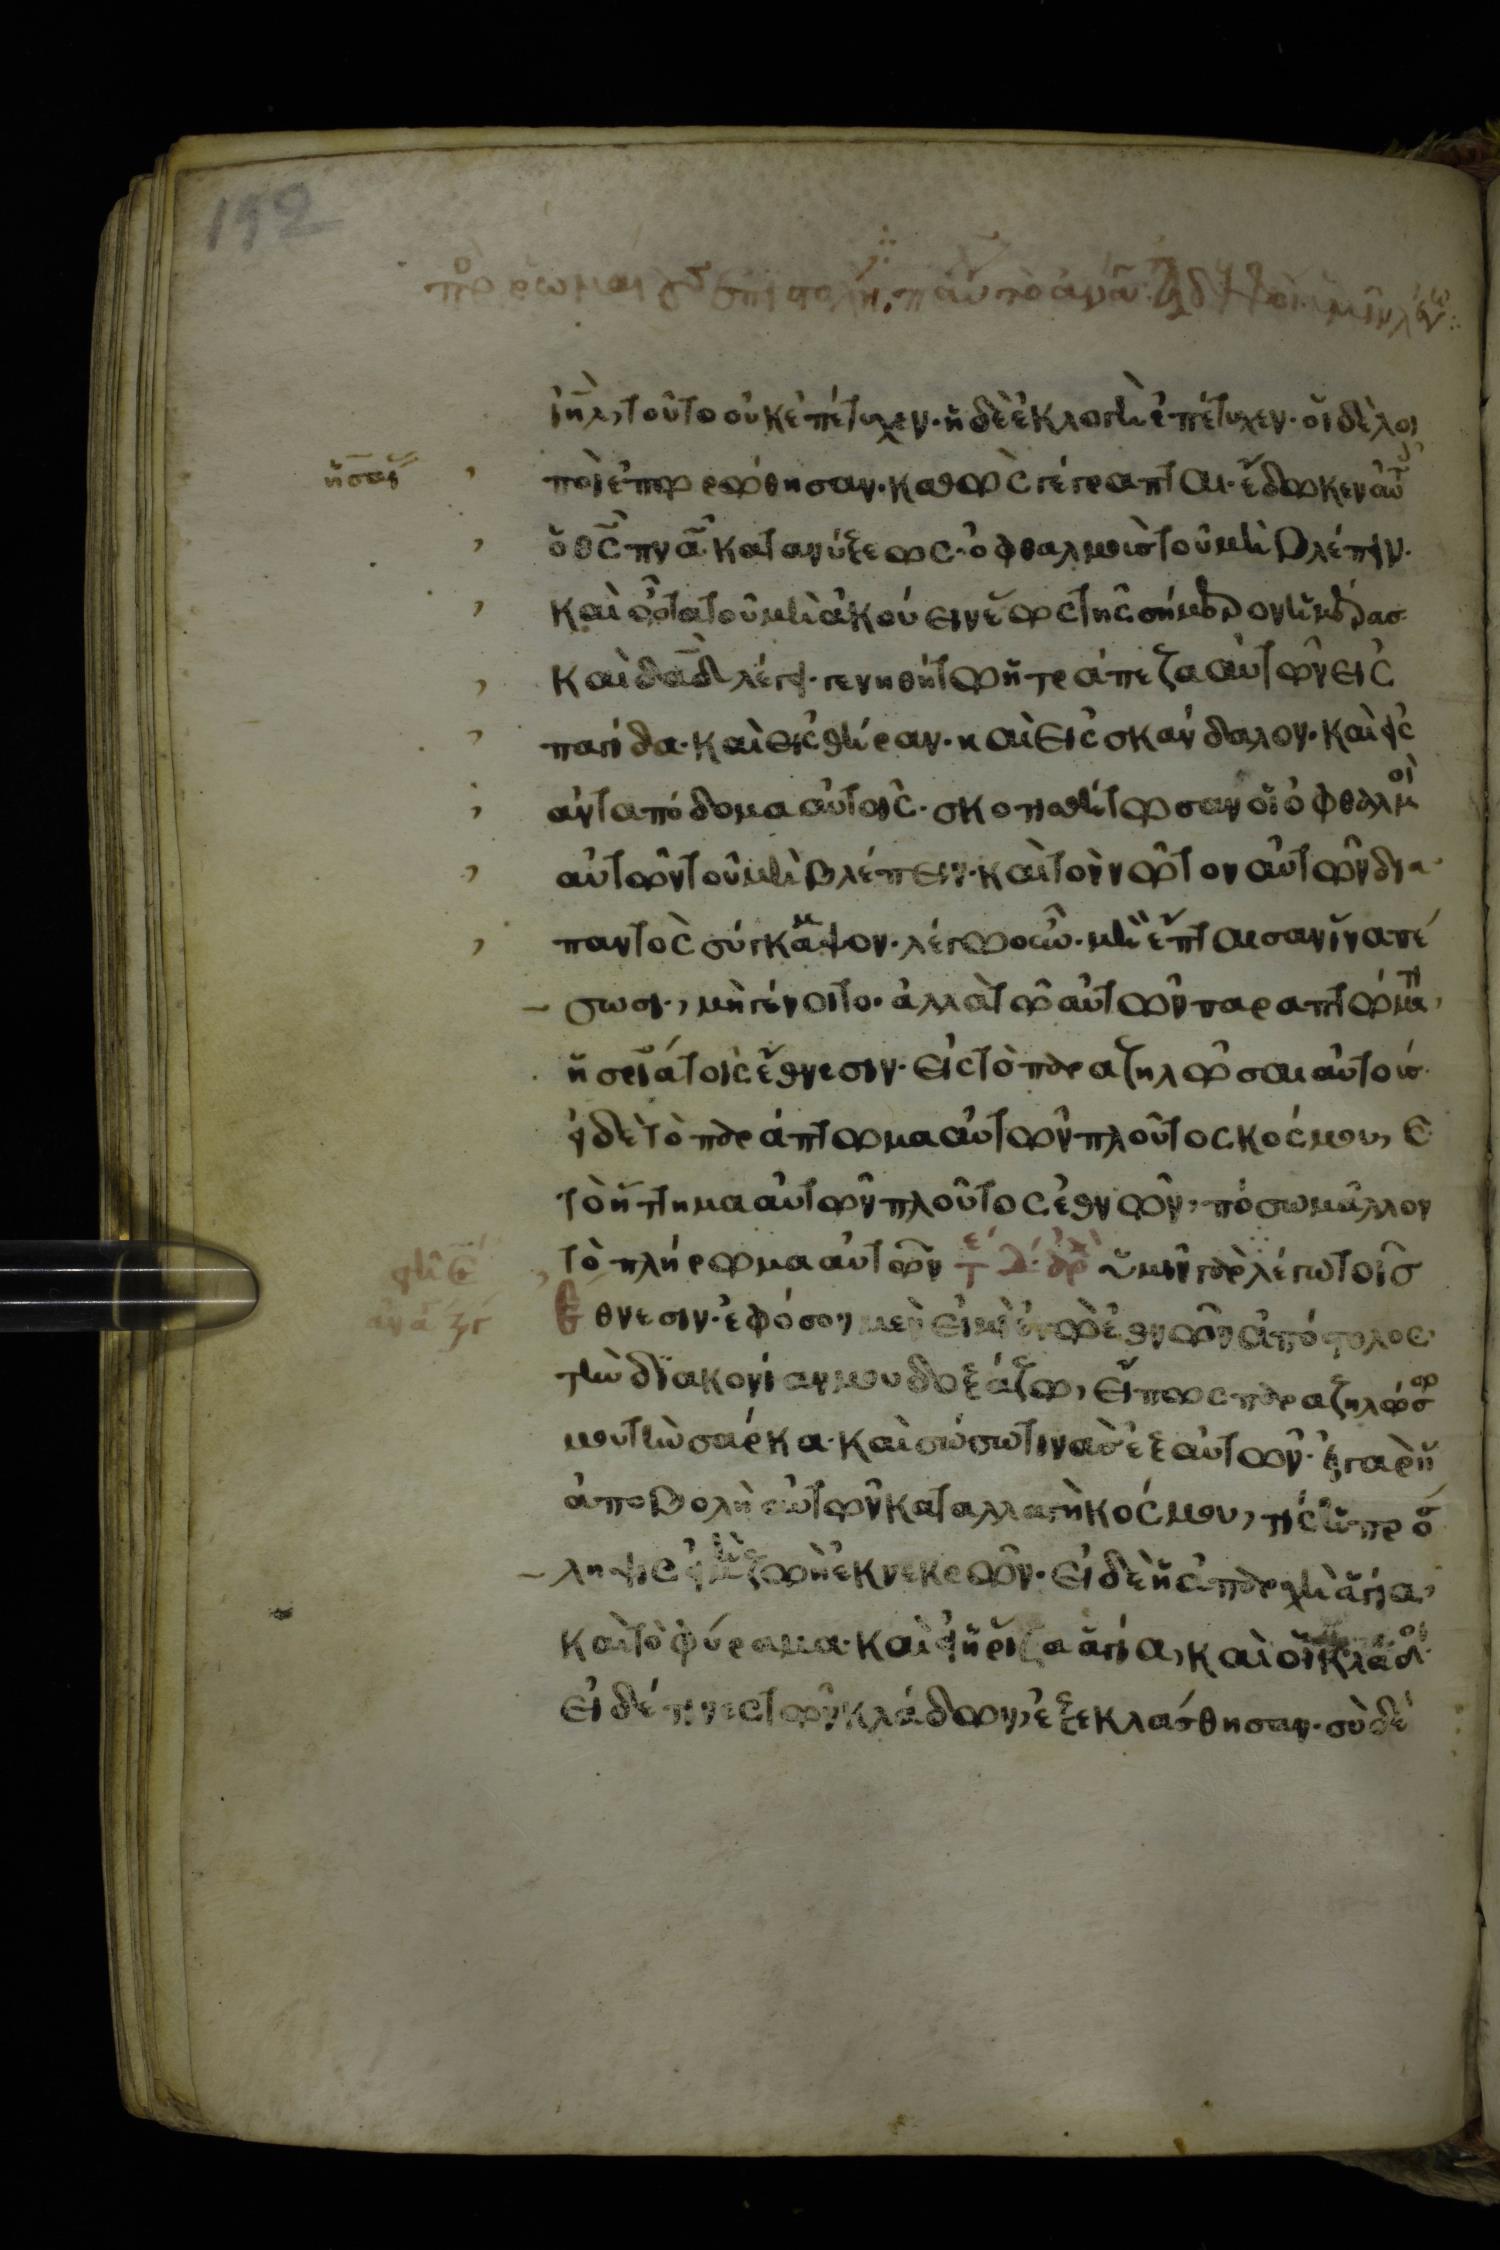 192
ἰη̅λ, τοῦτο οὐκ ἐπέτυχεν· ἡ δὲ ἐκλογὴ ἐπέτυχεν· οἱ δὲ λοι
ἡσαΐ
ποὶ ἐπωρώθησαν· καθὼς γέγραπται· ἔδωκεν αὐτ
ὁ θ̅ς πν̅α κατανύξεως· ὀφθαλμοὺς τοῦ μὴ βλέπειν·
καὶ ὦτα τοῦ μὴ ἀκούειν ἕως τῆς σήμερον ἡμέρας·
καὶ δα̅δ λέγει· γενηθήτω ἡ τράπεζα αὐτῶν εἰς
παγίδα· καὶ εἰς θήραν· καὶ εἰς σκάνδαλον· καὶ εἰς
ἀνταπόδομα αὐτοῖς· σκοτισθήτωσαν οἱ ὀφθαλμοὶ
αὐτῶν τοῦ μὴ βλέπειν· καὶ τὸν νῶτον αὐτῶν δια
παντὸς σύγκαμψον· λέγω οὖν· μὴ ἔπταισαν ἵνα πέ
σωσι, μὴ γένοιτο· ἀλλὰ τῷ αὐτῶν παραπτώματι,
ἡ σρία τοῖς ἔθνεσιν· εἰς τὸ παραζηλῶσαι αὐτοίσ·
εἰ δὲ τὸ παράπτωμα αὐτῶν πλοῦτος κόσμου, καὶ
τὸ ἥττημα αὐτῶν πλοῦτος ἐθνῶν, πόσω μᾶλλον
τὸ πλήρωμα αὐτῶν ὑμῖν γὰρ λέγω τοῖς
ἔθνεσιν· ἐφόσον μὲν εἰμὶ ἐγὼ ἐθνῶν ἀπόστολος
τὴν διακονίαν μου δοξάζω, εἴπως παραζηλώσω
μου τὴν σάρκα· καὶ σώσω τινὰς ἐξ αὐτῶν· εἰ γὰρ ἡ
ἀποβολὴ αὐτῶν καταλλαγὴ κόσμου, τίς ἡ πρόσ
ληψις εἰ μὴ ζωὴ ἐκ νεκρῶν· εἰ δὲ ἡ ἀπαρχὴ ἁγία,
καὶ τὸ φύραμα· καὶ εἰ ἡ ῥίζα ἁγία, καὶ οἱ κλάδοι·
εἰ δέ τινες τῶν κλάδων, ἐξεκλάσθησαν· σὺ δὲ